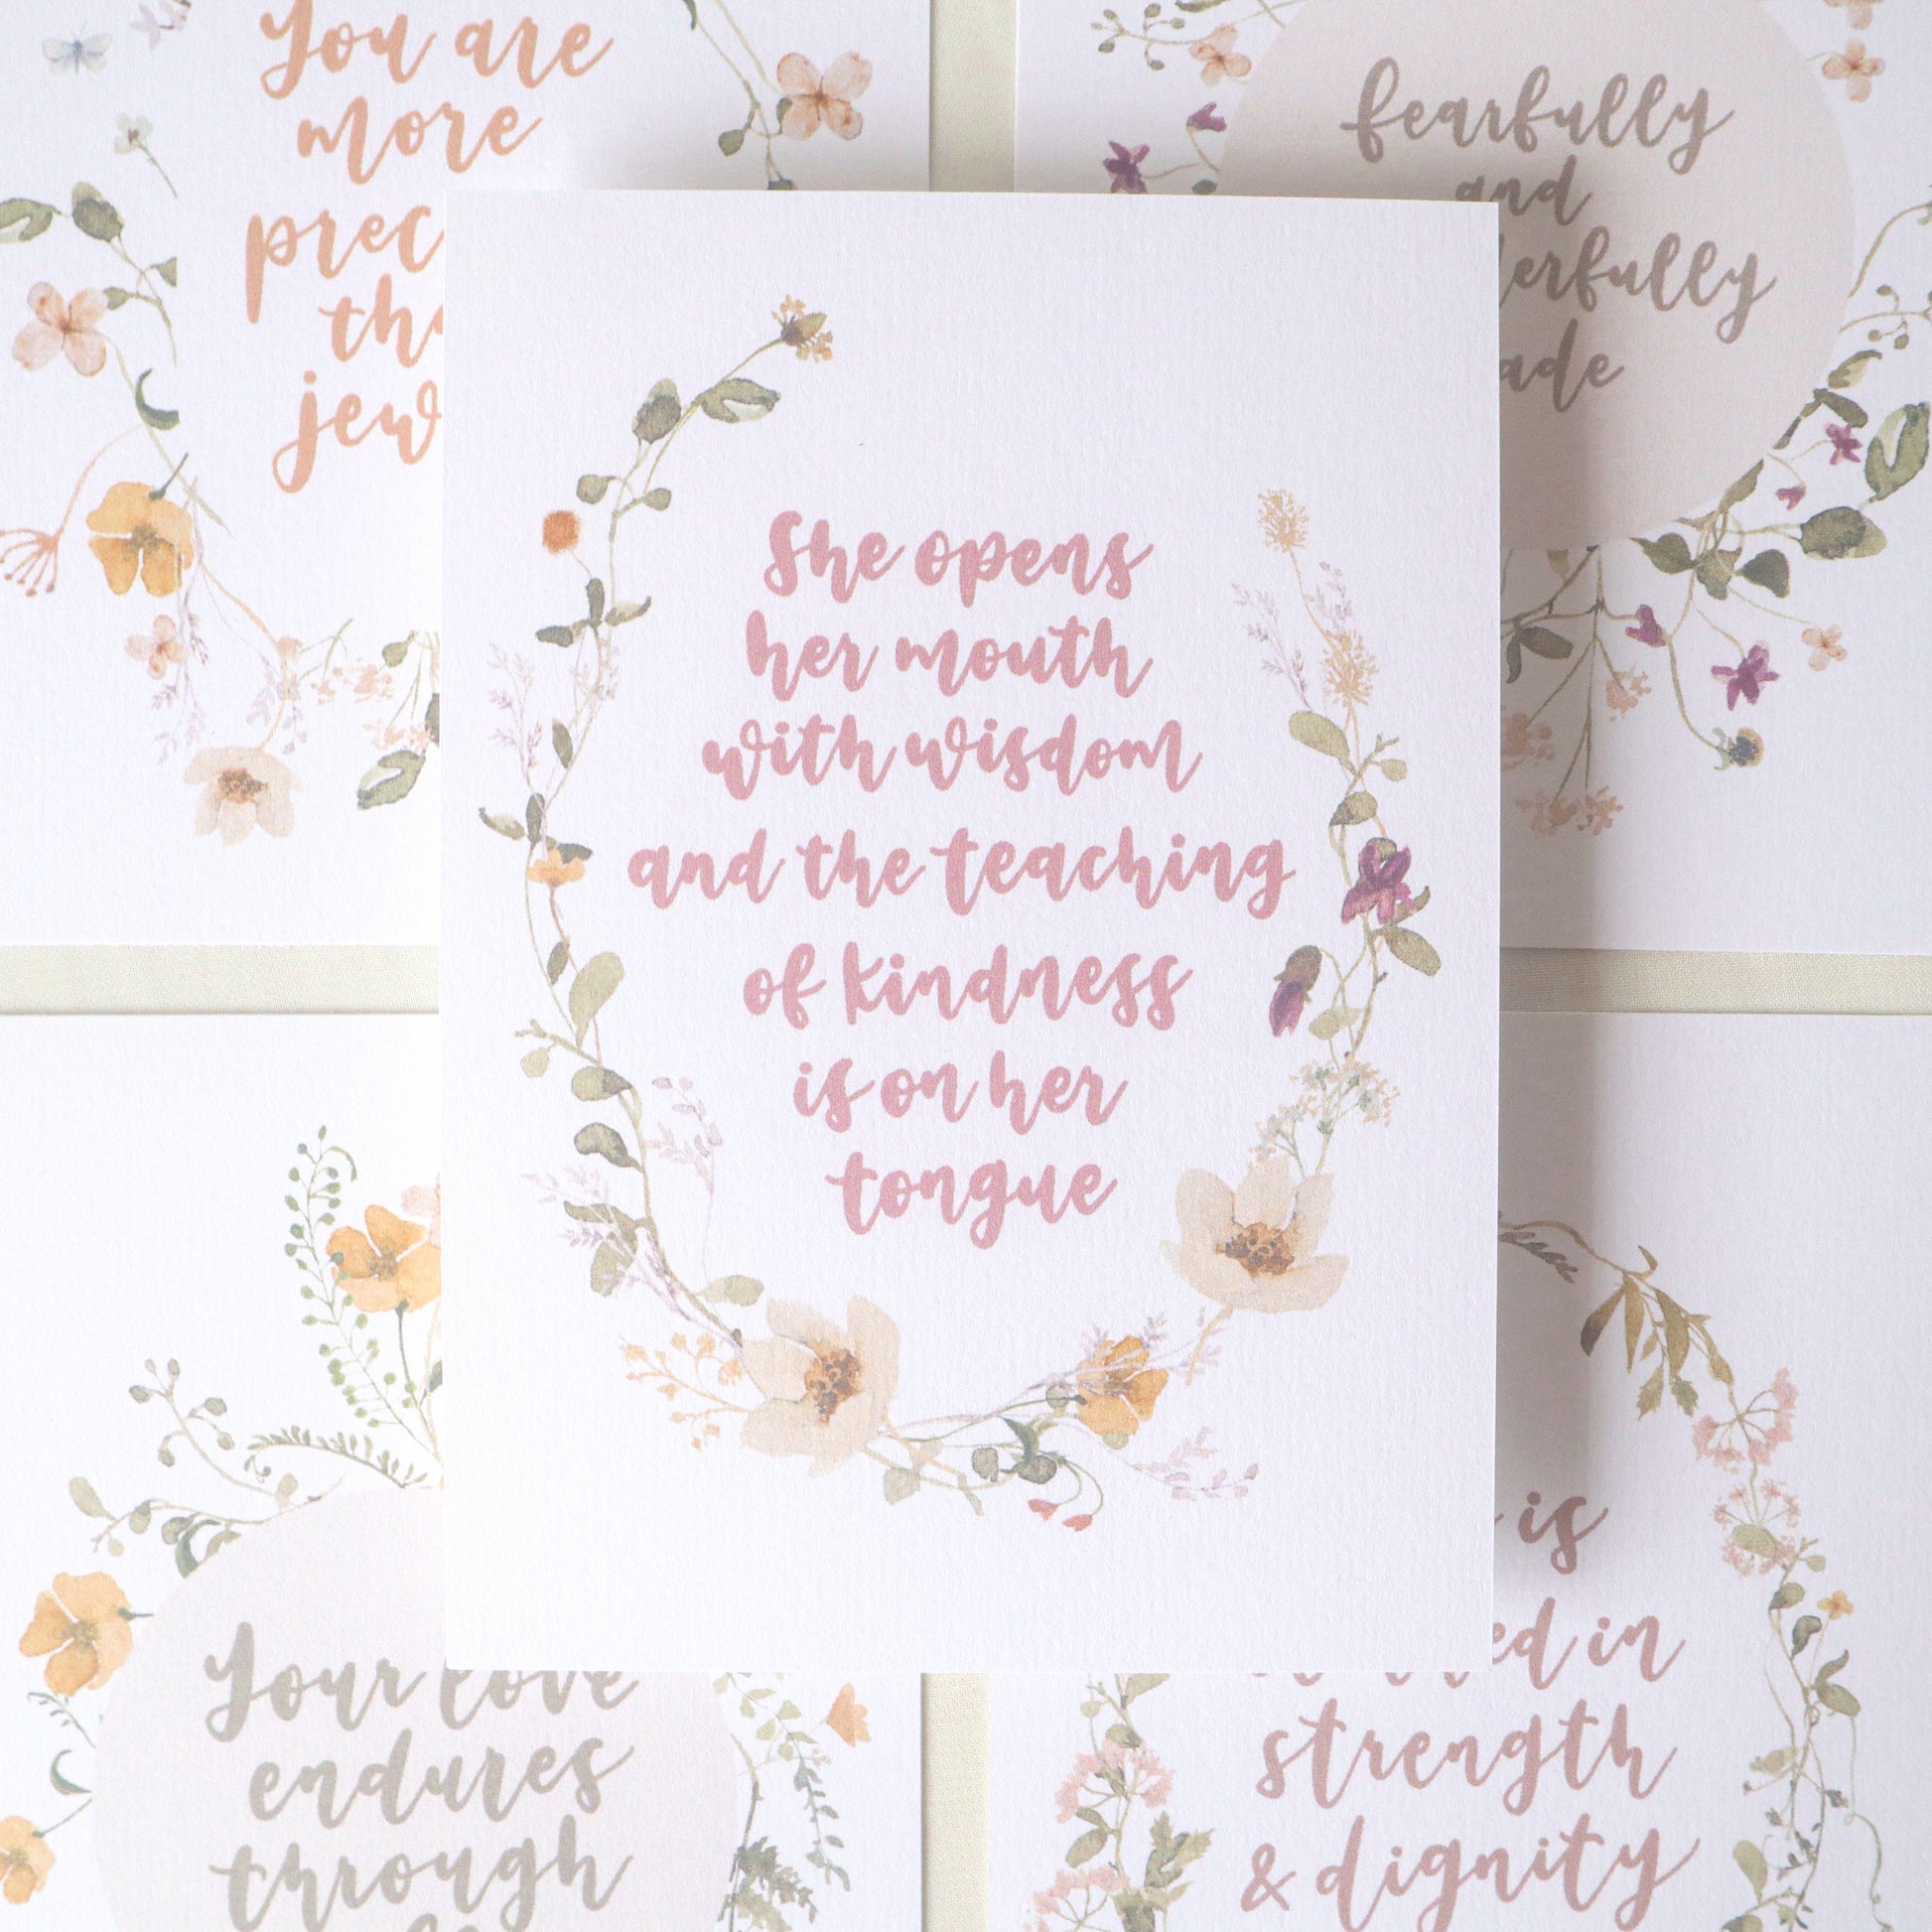 You are
more
the
fearfully
and
She opens
her mouth
with wisdom
and the teaching
of kindness
is on her
tongue
Your love
endures
through
is
in
strength
& dignity